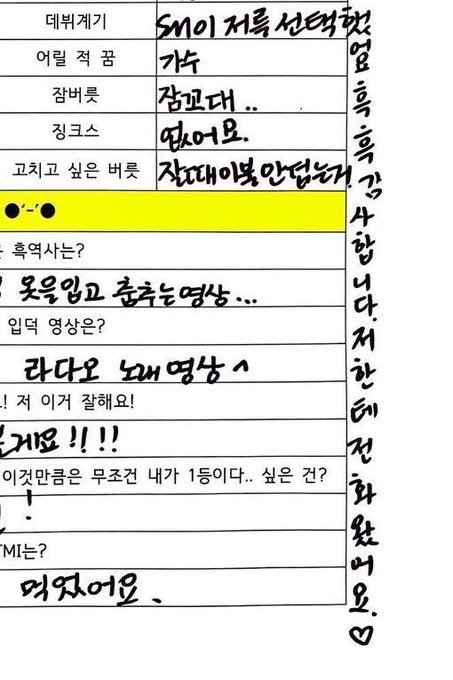 데뷔계기 SM이 저를 선택했
어릴 적 꿈 가수
잠버릇 잠꼬대..
징크스 없어요.
고치고 싶은 버릇 잘때이불안덥는거.
●'-'●
흑역사는?
옷을입고 춤추는영상...
입덕 영상은?
라디오 노래영상 ^
! 저 이거 잘해요!
게요!!!!
이것만큼은 무조건 내가 1등이다.. 싶은 건?
!
TMI는?
먹었어요.
엄흑흑감사합니다.저한테전화왔어요.♡